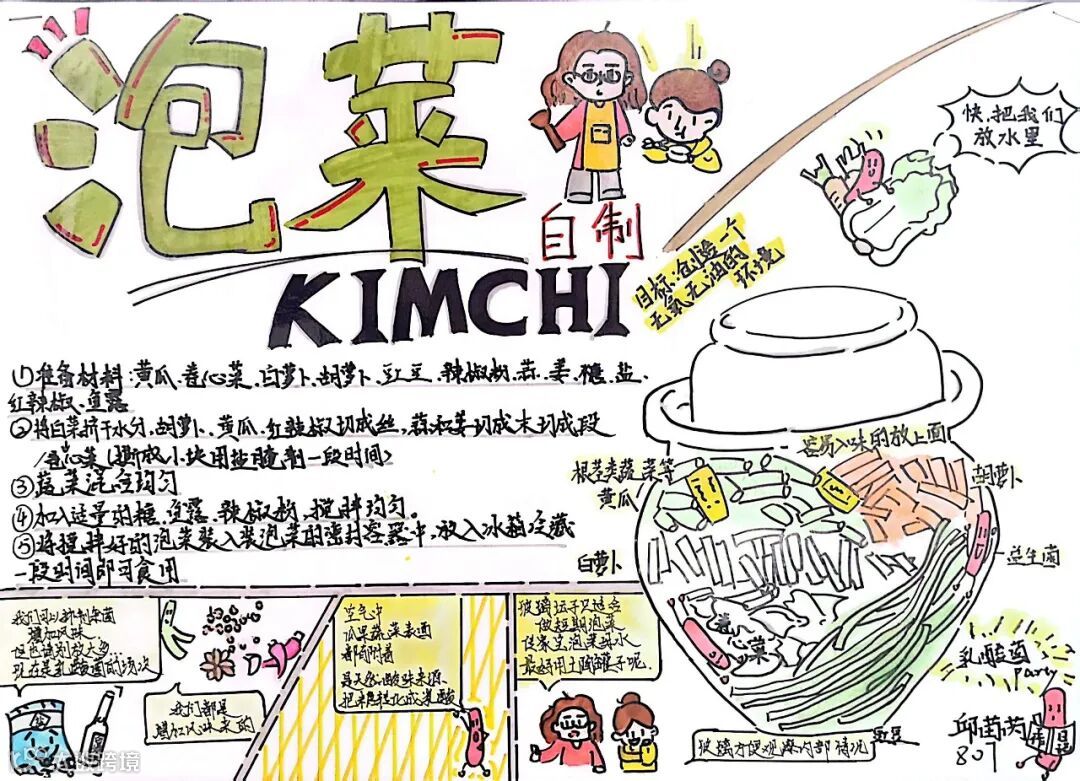 泡菜
自制
KIMCHI
目标:创造一个
无氧无油的
环境
快,把我们
放水里
①准备材料:黄瓜、卷心菜、白萝卜、胡萝卜、豇豆、辣椒粉、蒜、姜、糖、盐、
红辣椒、鱼露
②将白菜挤干水分,胡萝卜、黄瓜、红辣椒切成丝,蒜和姜切成末切成段
卷心菜(撕成小块用盐腌制一段时间)
③蔬菜混合均匀
④加入适量的糖、鱼露、辣椒粉,搅拌均匀。
⑤将搅拌好的泡菜装入装泡菜的密封容器中,放入冰箱冷藏
一段时间即可食用
容易入味的放上面
根茎类蔬菜等
黄瓜
胡萝卜
白萝卜
益生菌
卷心菜
玻璃方便观察内部情况
豇豆
乳酸菌
Party
807
我们可以抑制杂菌
增加风味
但也请别放太多
现在是乳酸菌的场次
我们都是
增加风味来的
空气中
瓜果蔬菜表面
都附着
是天然酸味来源
把来糖转化成乳酸
玻璃坛子只适合
做短期泡菜
但家里泡菜咏水
最好用土陶罐子呢